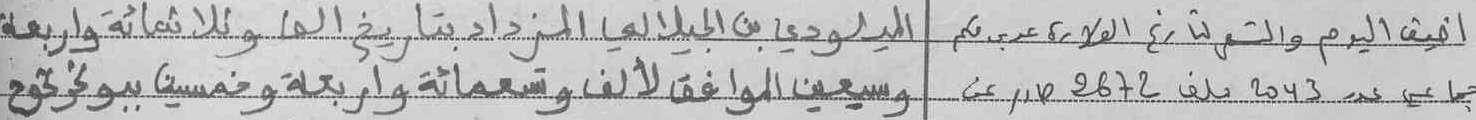 اضيف اليوم والشهر لتاريخ الولادة بحكم
جماعي عدد 2043 ملف 2672 صادر عن
الميلودي بن الجيلالي المزداد بتاريخ الف وثلاثمائة واربعة
وسبعين الموافق لألف وتسعمائة واربعة وخمسين